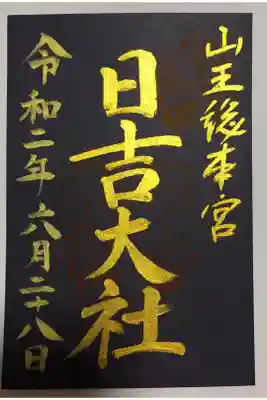 山王総本宮
日吉大社
令和二年六月二十八日